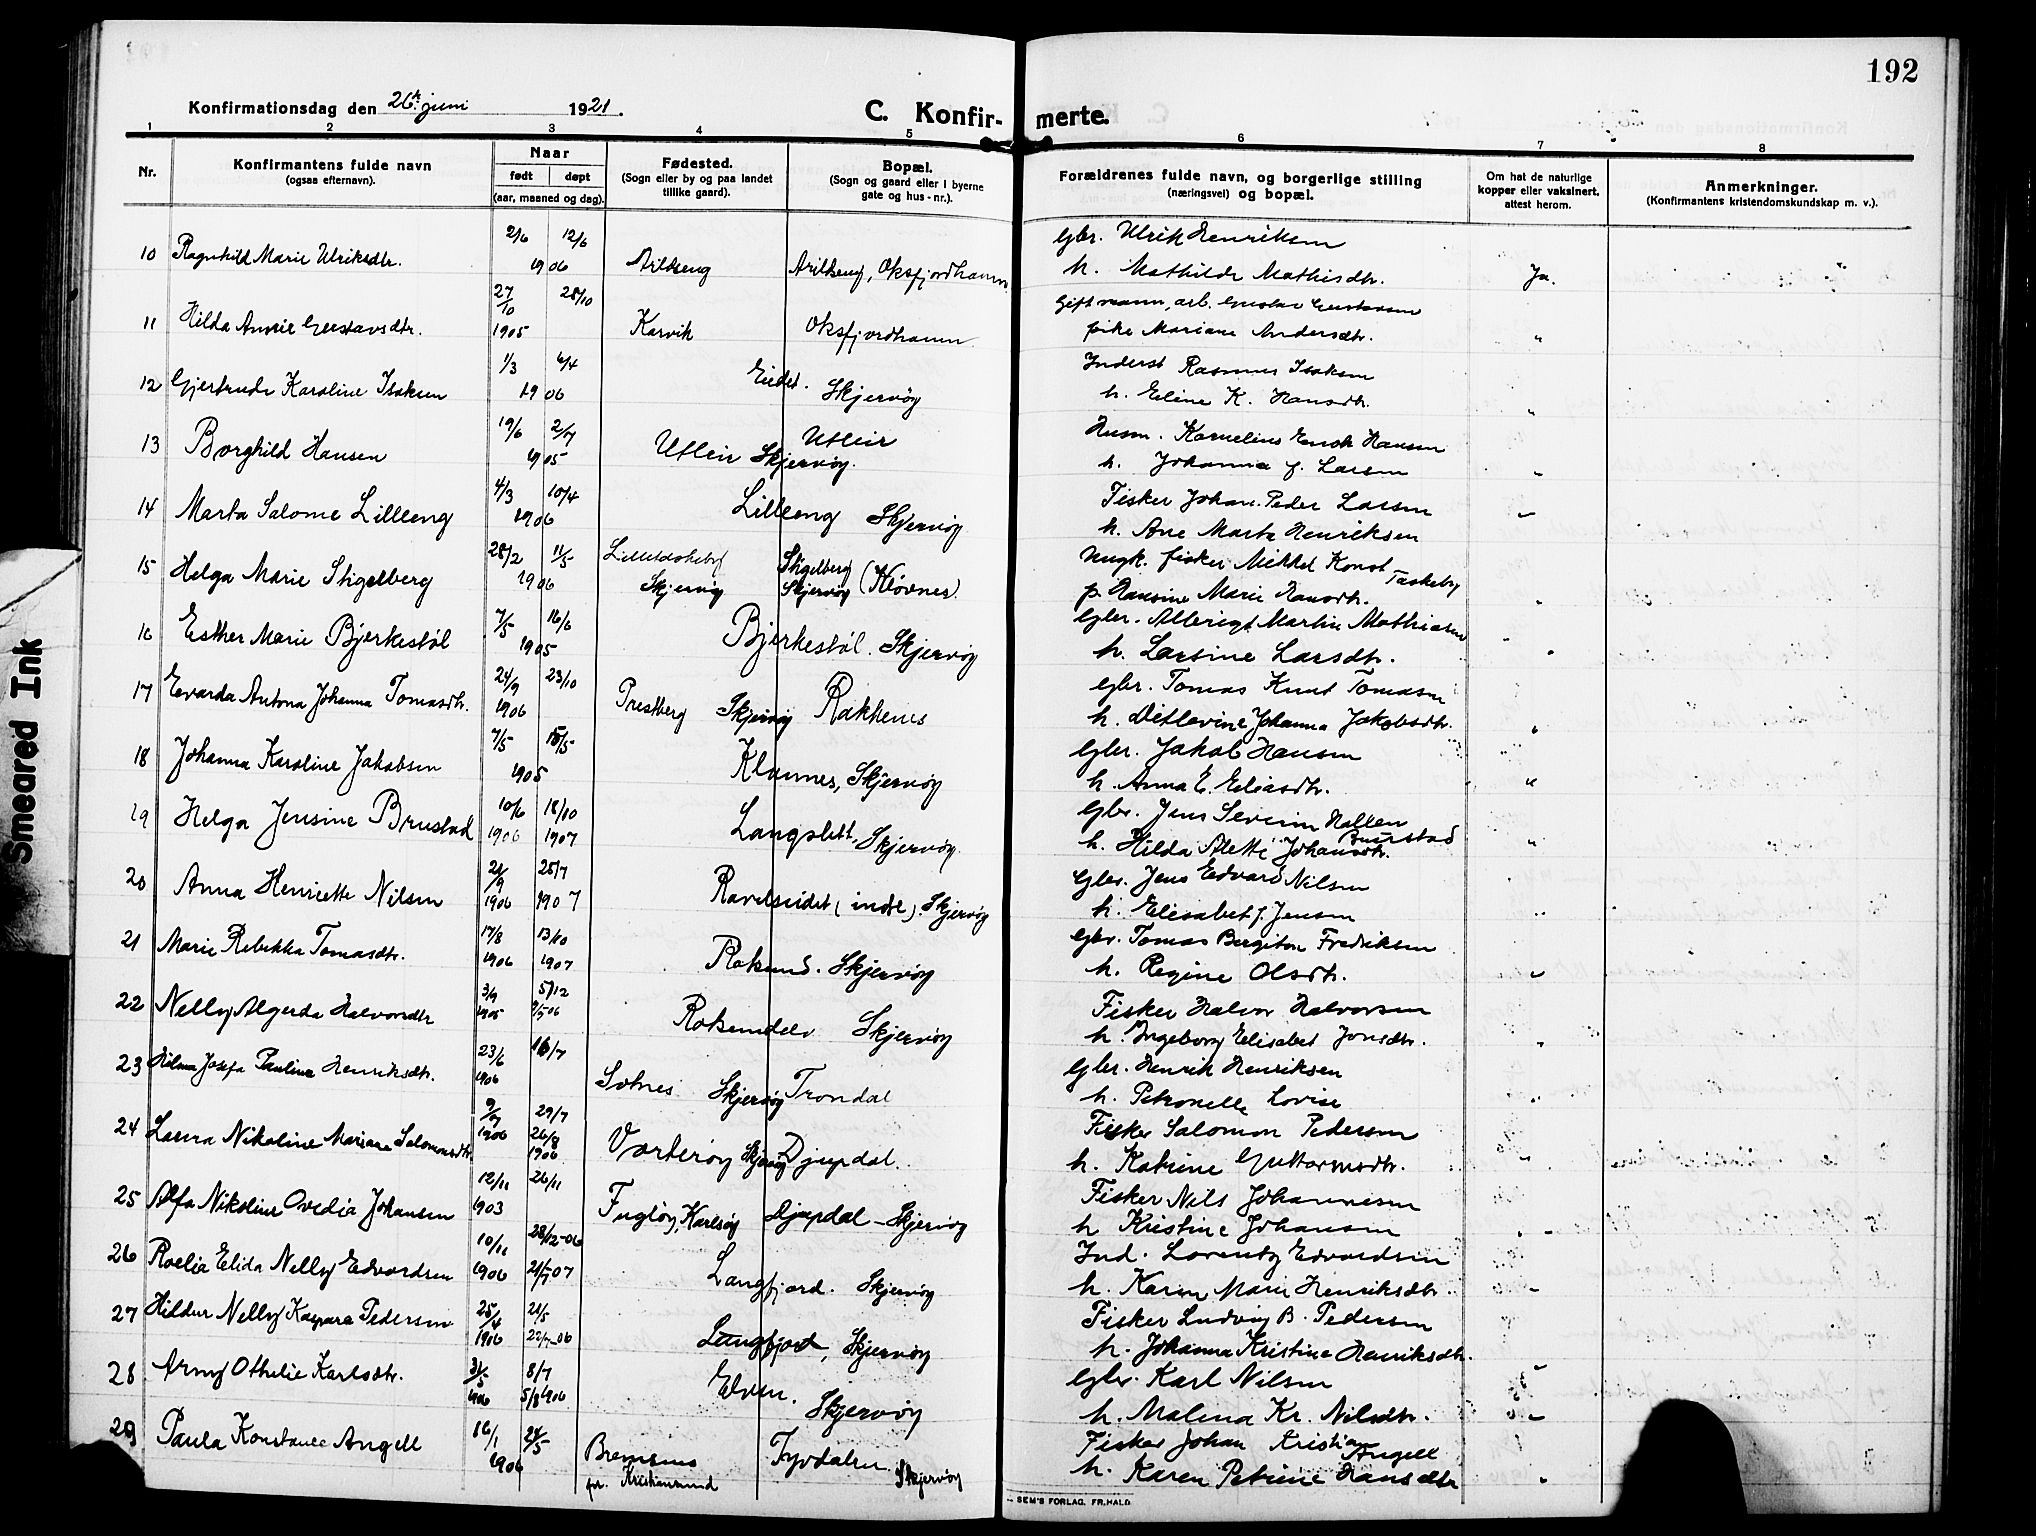 192
Konfirmationsdag den 26. juni 1921.
C. Konfir- merte.
1 2 3 4 5 6 7 8
Nr.
Konfirmantens fulde navn
(ogsaa efternavn).
Naar
født døpt
(aar, maaned og dag).
Fødested.
(Sogn eller by og paa landet
tillike gaard).
Bopæl.
(Sogn og gaard eller i byerne
gate og hus-nr.).
Forældrenes fulde navn, og borgerlige stilling
(næringsvei) og bopæl.
Om hat de naturlige
kopper eller vaksinert,
attest herom.
Anmerkninger.
(Konfirmantens kristendomskundskap m. v.).
2/6 12/6 Gbr. Ulrik Henriksen
10 Ragnhild Marie Ulriksdtr. 1906 Arildseng Arildseng, Oksfjordhamn h. Mathilde Mathisdtr. Ja.
27/10 28/10 Gift mann, arb. Gustav Gustavsen
11 Hilda Annie Gustavsdtr. 1905 Karvik Oksfjordhamn pike Mariane Andersdtr. "
1/3 6/4 Inderst Rasmus Isaksen
12 Gjertrude Karoline Isaksen 1906 Eidet. Skjervøy h. Eline K. Hansdtr. "
19/6 2/7 Utleir Husm. Kornelius Enok Hansen
13 Borghild Hansen 1905 Utleir Skjervøy. h. Johanna f. Larsen "
4/3 10/4 Fisker Johan Peder Larsen
14 Marta Salome Lilleng 1906 Lilleng Skjervøy h. Ane Marta Henriksen "
28/2 11/5 Stigelberg Ungk. fisker Mikkel Konst Taskeby
15 Helga Marie Stigelberg 1906 Skjervøy Skjervøy (Kløvnes). p. Hansine Marie Hansdtr. "
7/5 16/6 Gbr. Martin Mathiasen
16 Esther Marie Bjerkestøl 1905 Bjerkestøl. Skjervøy h. Larsine Larsdtr. "
24/9 23/10 Gbr. Tomas Knut Tomasen
17 Evarda Antona Johanna Tomasdtr. 1906 Prestberg Skjervøy Rakkenes h. Ditlevine Johanna Jakobsdtr. "
7/5 15/5 Gbr. Jakob Hansen
18 Johanna Karoline Jakobsen 1905 Klaunes, Skjervøy h. Anna E. Eliasdtr. "
10/6 18/10 Gbr. Jens Severin Hallen Brustad
19 Helga Jensine Brustad 1906 1907 Langslett Skjervøy. h. Hilda Alette Johansdtr. "
25/7 Gbr. Jens Edvard Nilsen
20 Anna Henriette Nilsen 1906 1907 Ravelseidet (indre). Skjervøy h. Elisabet f. Jensen "
17/8 13/10 Gbr. Tomas Bergiton Fredriksen
21 Marie Rebekka Tomasdtr. 1906 1907 Roksund. Skjervøy h. Regine Olsdtr. "
3/9 5/12 Fisker Halvor Halvorsen
22 Nelly Algerda Halvorsdtr 1905 9/5 06 Skjervøy h. Ingeborg Elisabet Jonsdtr. "
23/6 16/7 Gbr. Henrik Henriksen
23 Hilma Josefa Pauline Henriksdtr. 1906 Sotnes Skjervøy Trondal h. Petronelle Lovise "
29/7 Fisker Salomon Pedersen
24 Laura Nikoline Mariane Salomonsdtr. 1906 26/8 1906 Vorterøy Skjervøy Djupdal. h. Katrine Guttormsdtr. "
12/11 26/11 Fisker Nils Johannesen
25 Alfa Nikoline Ovedia Johansen 1903 Fugløy, Karlsøy Djupdal - Skjervøy h Kristine Johansen "
10/11 28/12-06 Ind. Lorentz Edvardsen
26 Roelia Elida Nelly Edvardsen 1906 21/7 07 Langfjord. Skjervøy h. Karen Marie Henriksdtr. "
25/4 21/5 Fisker Ludvig B. Pedersen
27 Hildur Nelly Kaspara Pedersen 1906 22/7-06 Langfjord, Skjervøy h. Johanna Kristine Henriksdtr. "
3/5 8/7 Gbr. Karl Nilsen
28 Arny Othelie Karlsdtr. 1906 5/8 1906 Elven. Skjervøy h. Malena Kr. Nilsdtr. "
16/1 24/5 Fisker Johan Kristian Angell
29 Paula Konstance Angell 1906 Bremsnes Tyvdalen Skjervøy h. Karen Petrine Hansdtr "
pr. Kristiansund
SEM'S FORLAG, FR.HALD.
Smeared Ink